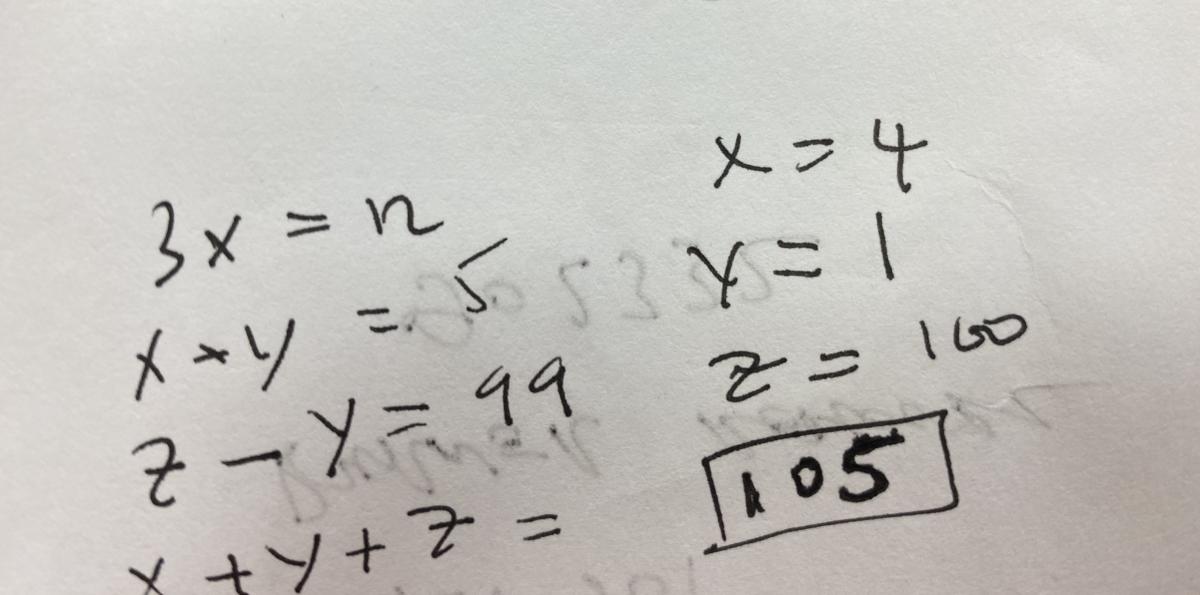 3x = 12
x + y = 5
z - y = 99
x + y + z =
x = 4
y = 1
z = 100
105